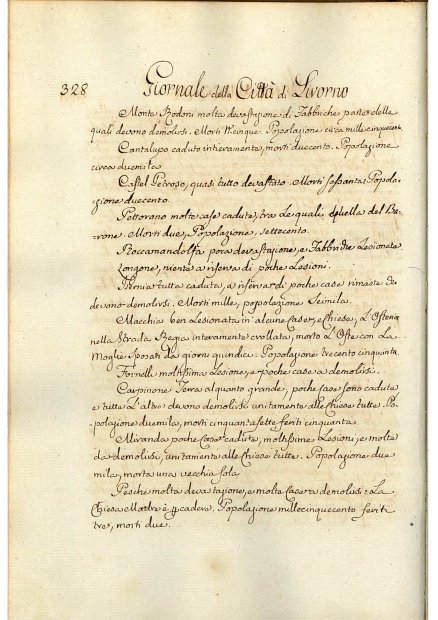 328 Giornale della Città di Livorno
Monte Rodoni molta devastazione di Fabbriche, parte delle
quali devono demolirsi. Morti N.° cinque. Popolazione circa mille cinquecen.
Cantalupo caduto intieramente, morti duecento. Popolazione
circa duemila
Castel Petroso, quasi tutto devastato. Morti sessanta: Popola-
zione duecento.
Pettorano molte case cadute, tra le quali quella del Ba-
rone. Morti due, Popolazione, settecento.
Roccamandolfa poca devastazione, e Fabbriche Lesionate
Longone, niente a riserva di poche Lesioni.
Isernia tutta caduta, a riserva di poche case rimaste che
devono demolirsi. Morti mille, popolazione Seimila.
Macchia ben Lesionata in alcune Case, e Chiese, L'Osteria
nella Strada Regia interamente crollata, morto L'Oste con La
Moglie Sposati da giorni quindici. Popolazione trecento cinquanta
Fornelli moltissime Lesione, e poche case a demolirsi.
Carpinone Terra alquanto grande, poche case sono cadute
e tutte L'altre devono demolirsi unitamente alle Chiese tutte. Po-
polazione duemila, morti cinquantasette feriti cinquanta
Miranda poche Case cadute, moltissime Lesioni, e molte
da demolirsi, unitamente alle Chiese tutte. Popolazione due
mila, morta una vecchia sola
Pesche molta devastazione, e molte Case a demolirsi: La
Chiesa Madre è p cadere. Popolazione millecinquecento feriti
tre, morti due.